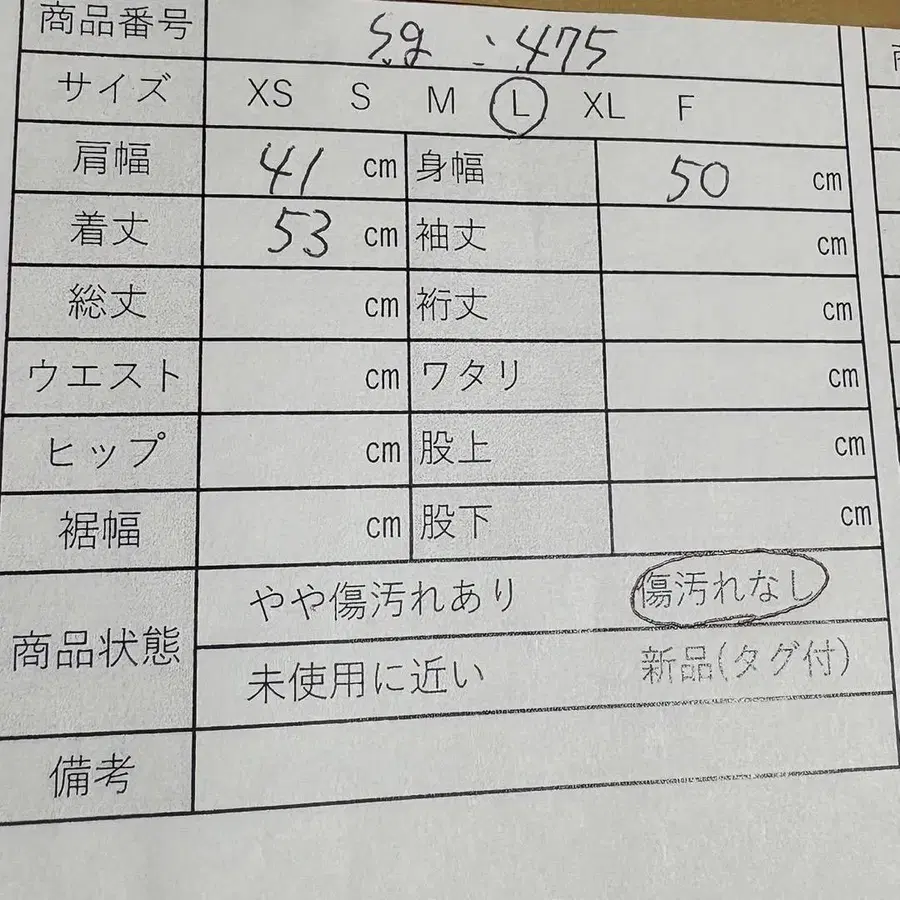 商品番号 Sg : 475
サイズ XS S M L XL F
肩幅 41 cm 身幅 50 cm
着丈 53 cm 袖丈 cm
総丈 cm 裄丈 cm
ウエスト cm ワタリ cm
ヒップ cm 股上 cm
裾幅 cm 股下 cm
商品状態
やや傷汚れあり 傷汚れなし
未使用に近い 新品(タグ付)
備考